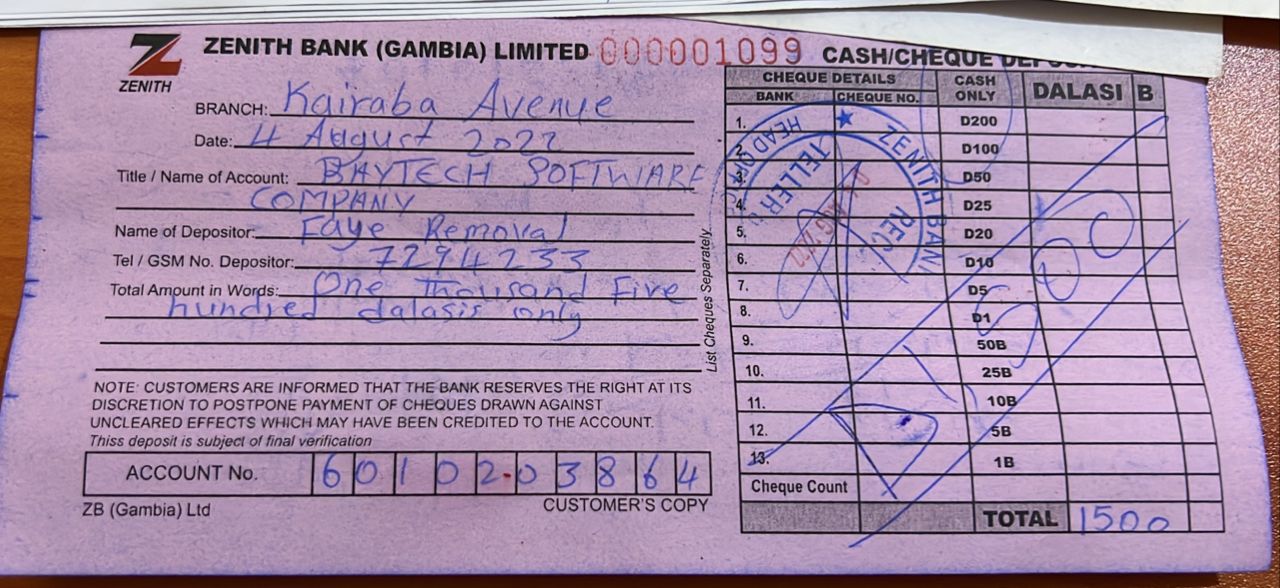 ZENITH
ZENITH BANK (GAMBIA) LIMITED 000001099 CASH/CHEQUE
BRANCH: Kairaba Avenue
Date: 4 August 2022
Title / Name of Account: BAYTECH SOFTWARE
COMPANY
Name of Depositor: Faye Removal
Tel / GSM No. Depositor: 7294233
Total Amount in Words: One thousand Five
hundred dalasis only
NOTE: CUSTOMERS ARE INFORMED THAT THE BANK RESERVES THE RIGHT AT ITS
DISCRETION TO POSTPONE PAYMENT OF CHEQUES DRAWN AGAINST
UNCLEARED EFFECTS WHICH MAY HAVE BEEN CREDITED TO THE ACCOUNT.
This deposit is subject of final verification
ACCOUNT No. 6010203864
ZB (Gambia) Ltd CUSTOMER'S COPY
List Cheques Separately
CHEQUE DETAILS CASH ONLY DALASI B
BANK CHEQUE NO.
1. D200
2. D100
3. D50
4. D25
5. D20
6. D10
7. D5
8. D1
9. 50B
10. 25B
11. 10B
12. 5B
13. 1B
Cheque Count
TOTAL 1500
D1500
ZENITH BANK
HEAD
TELLER
REC.
AUG 2022